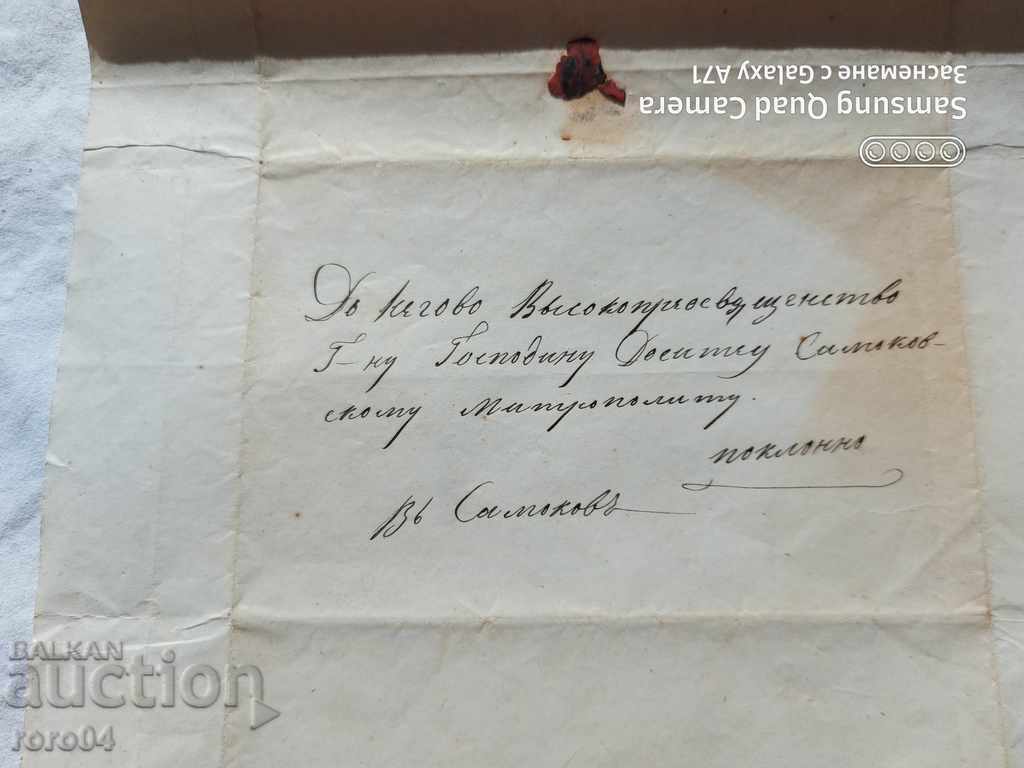 Samsung Quad Camera
Заснемане с Galaxy A71
Дь Негово Высокопреосвященство
Г-ну Господину Доситею Самоков-
скому Митрополиту.
поклонно
Вь Самоковъ
BALKAN
auction
roro04